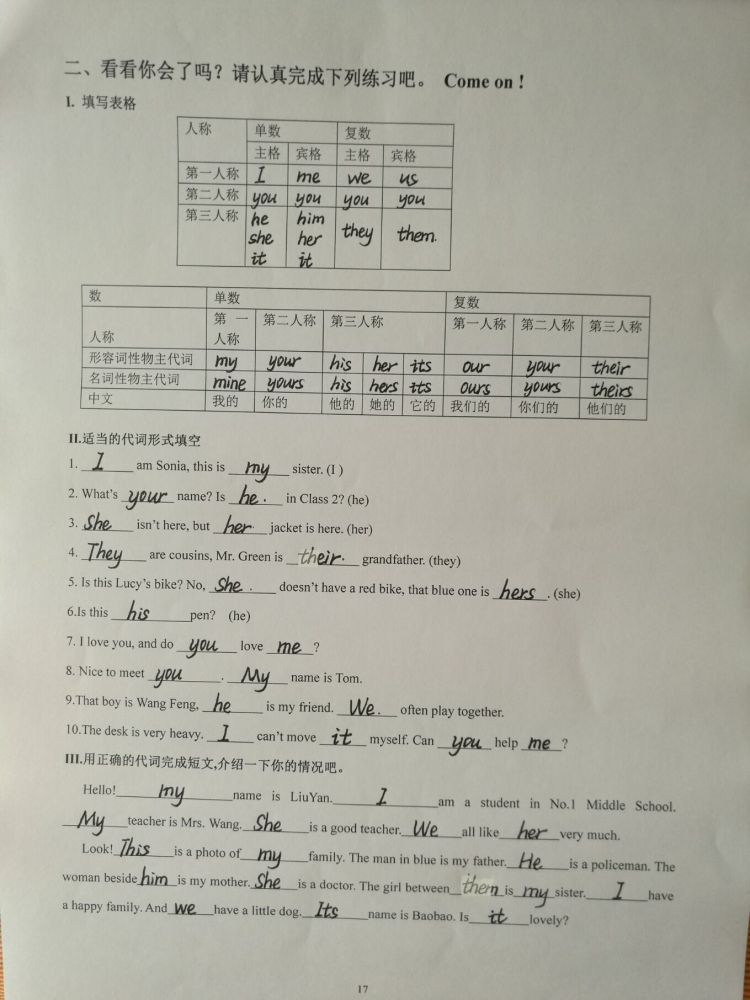 二、看看你会了吗？请认真完成下列练习吧。 Come on！
I. 填写表格
人称 单数 复数
主格 宾格 主格 宾格
第一人称 I me we us
第二人称 you you you you
第三人称 he him they them.
she her
it it
数 单数 复数
人称 第一人称 第二人称 第三人称 第一人称 第二人称 第三人称
形容词性物主代词 my your his her its our your their
名词性物主代词 mine yours his hers its ours yours theirs
中文 我的 你的 他的 她的 它的 我们的 你们的 他们的
II.适当的代词形式填空
1. I am Sonia, this is my sister. (I )
2. What's your name? Is he. in Class 2? (he)
3. She isn't here, but her. jacket is here. (her)
4. They are cousins, Mr. Green is their. grandfather. (they)
5. Is this Lucy's bike? No, she. doesn't have a red bike, that blue one is hers. (she)
6.Is this his pen? (he)
7. I love you, and do you love me?
8. Nice to meet you. My name is Tom.
9.That boy is Wang Feng, he is my friend. We. often play together.
10.The desk is very heavy. I can't move it myself. Can you help me?
III.用正确的代词完成短文,介绍一下你的情况吧。
Hello! my name is LiuYan. I am a student in No.1 Middle School.
My teacher is Mrs. Wang. She is a good teacher. We all like her very much.
Look! This is a photo of my family. The man in blue is my father. He is a policeman. The
woman beside him is my mother. She is a doctor. The girl between them is my sister. I have
a happy family. And we have a little dog. Its name is Baobao. Is it lovely?
17